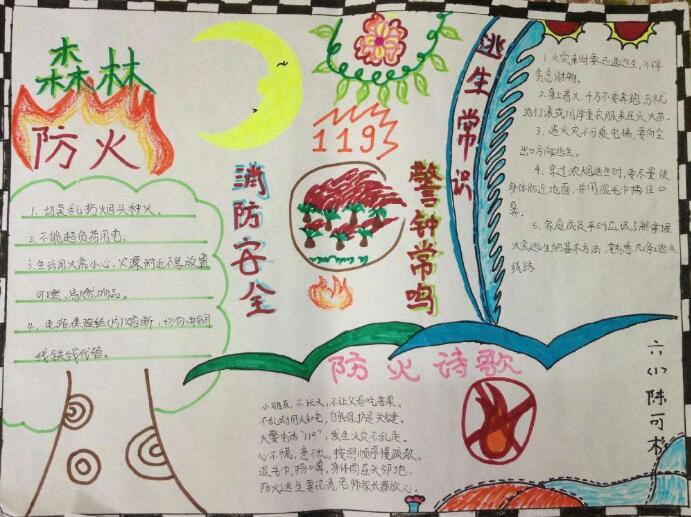 森林
防火
1、切莫乱扔烟头种火。
2、不能超负荷用电。
3、生活用火需小心,火源附近不要放置
可燃、易燃物品。
4、电路保险丝(片)熔断,切勿用铜
线铁线代替。
消防安全
119
警钟常鸣
逃生常识
1、火灾来时要迅速逃生,不得
贪恋财物。
2、身上着火,千万不要奔跑,可就
地打滚或用厚重衣服来压灭火苗。
3、遇火灾不可乘电梯,要向安
出口方向逃生。
4、穿过浓烟逃生时,要尽量使
身体贴近地面,并用湿毛巾捂住口
鼻。
5、家庭成员平时应该了解掌握
火灾逃生的基本方法,熟悉几条逃生
线路
防火诗歌
小朋友,不玩火,不让父母吃苦果。
不乱动用火和电,自我保护是关键。
火警电话"119",发生火灾不乱走。
心不慌,意不乱,按照顺序慢疏散。
湿毛巾,捂口鼻,身体前屈头邻地。
防火逃生要记清,老师家长都放心。
六(1)陈可